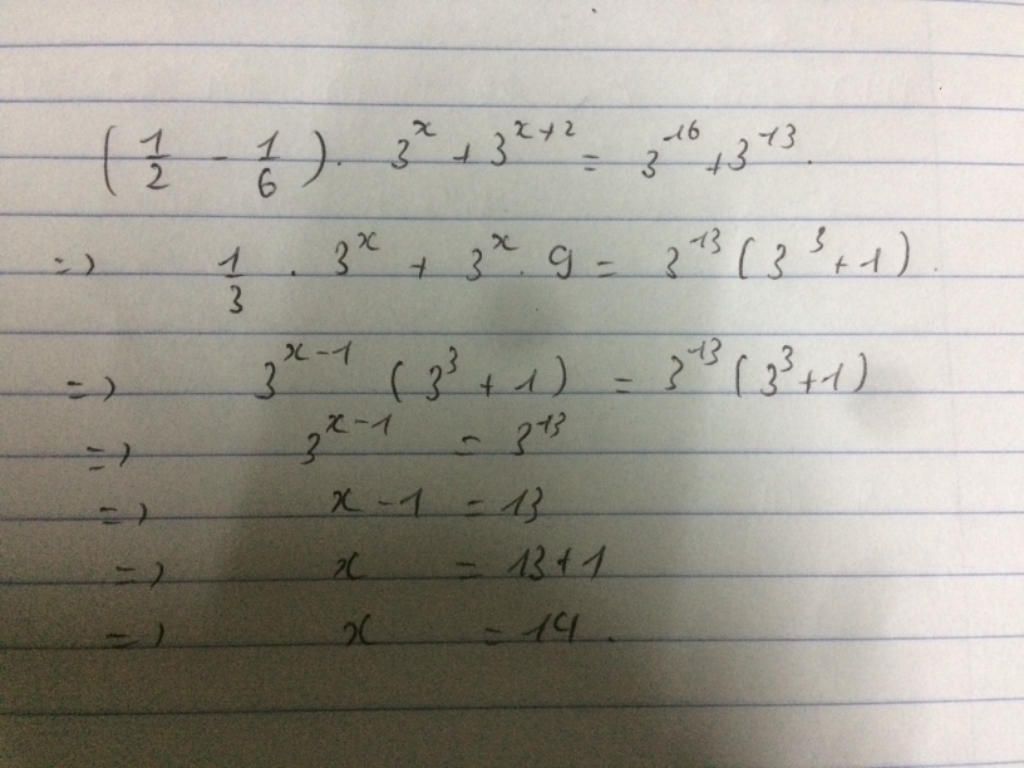 (1/2 - 1/6). 3^x + 3^{x+2} = 3^{16} + 3^{13}.
=> 1/3 . 3^x + 3^x . 9 = 3^{13} (3^3 + 1).
=> 3^{x-1} (3^3 + 1) = 3^{13} (3^3 + 1)
=> 3^{x-1} = 3^{13}
=> x - 1 = 13
=> x = 13 + 1
=> x = 14.